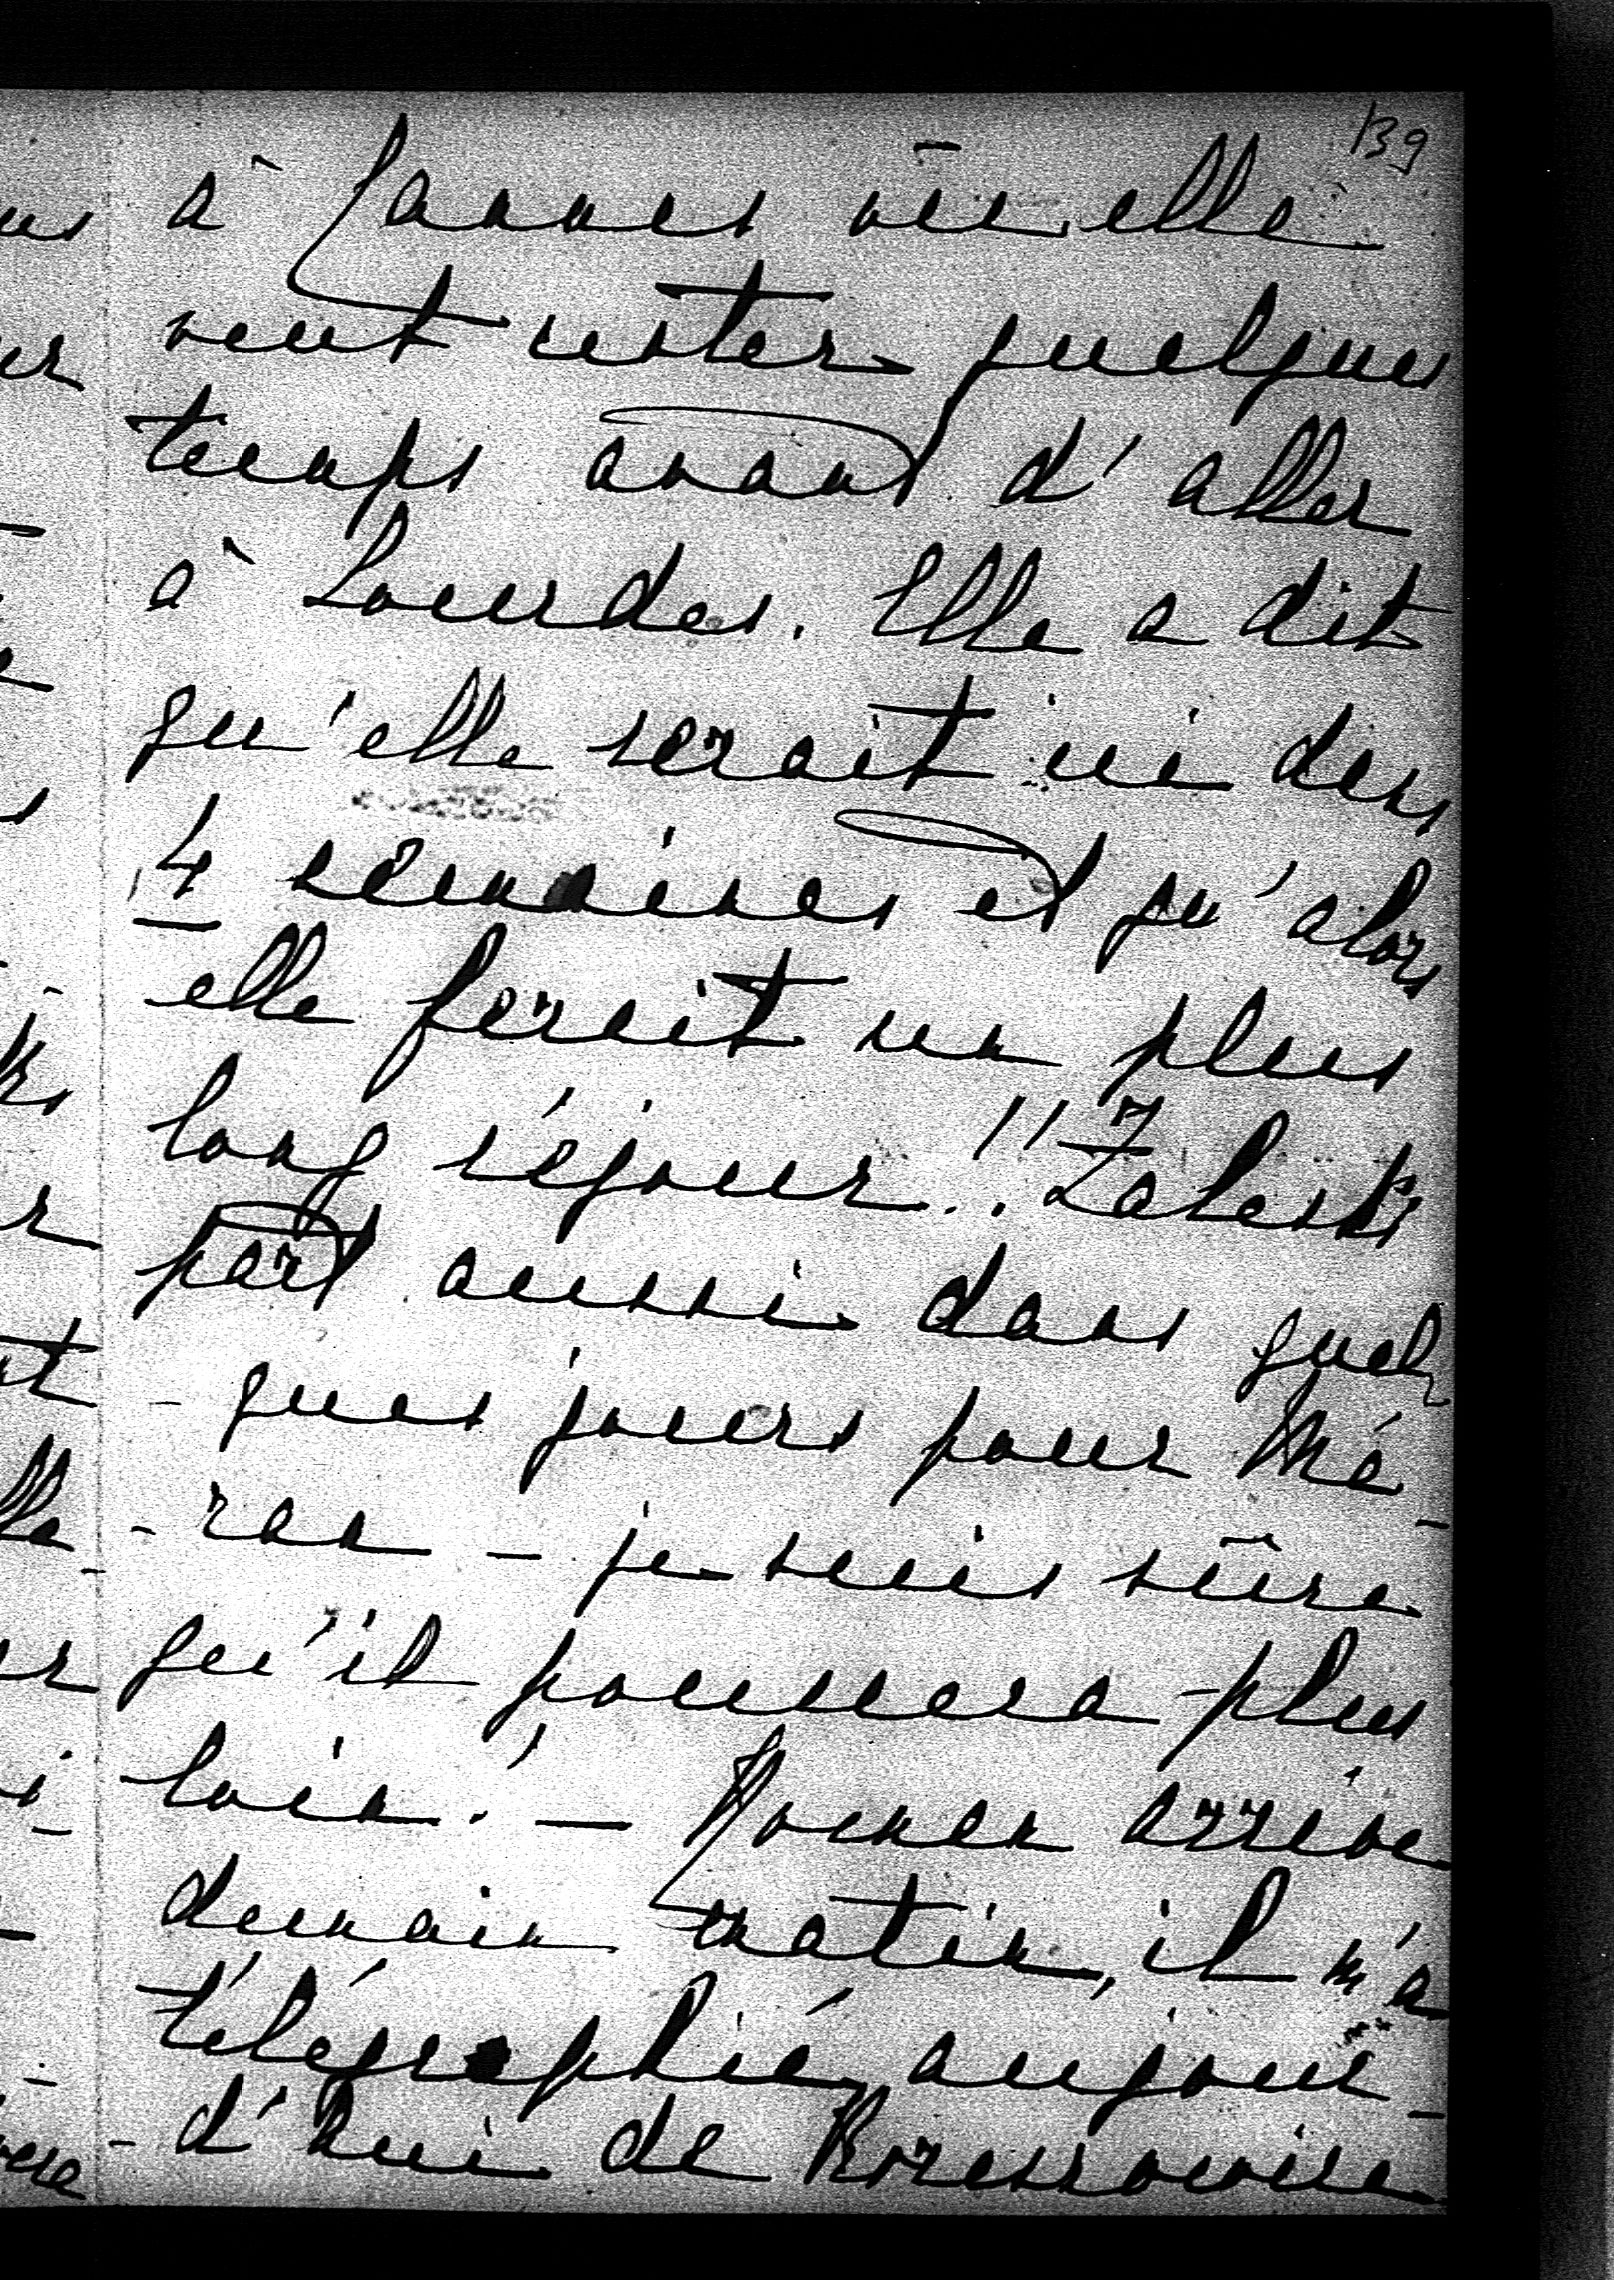 139
à Cannes où elle
veut rester quelques
temps avant d'aller
à Lourdes. Elle a dit
qu'elle serait ici dans
4 semaines et qu'alors
elle ferait un plus
long séjour!! Zaleski
part aussi dans quel-
- ques jours pour Mé-
- ran - je suis sûre
qu'il poussera plus
loin! — Roman arrive
demain matin, il m'a
télégraphié aujour-
- d'hui de Krzeszowice